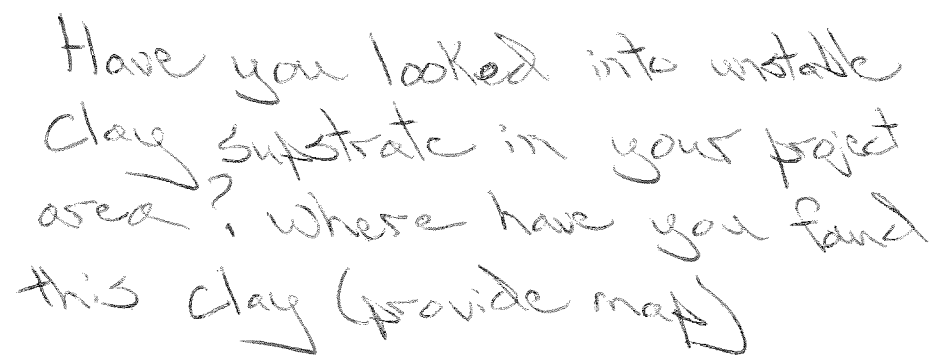 Have you looked into unstable
clay supstrate in your project
area? Where have you fand
this clay (provide map)